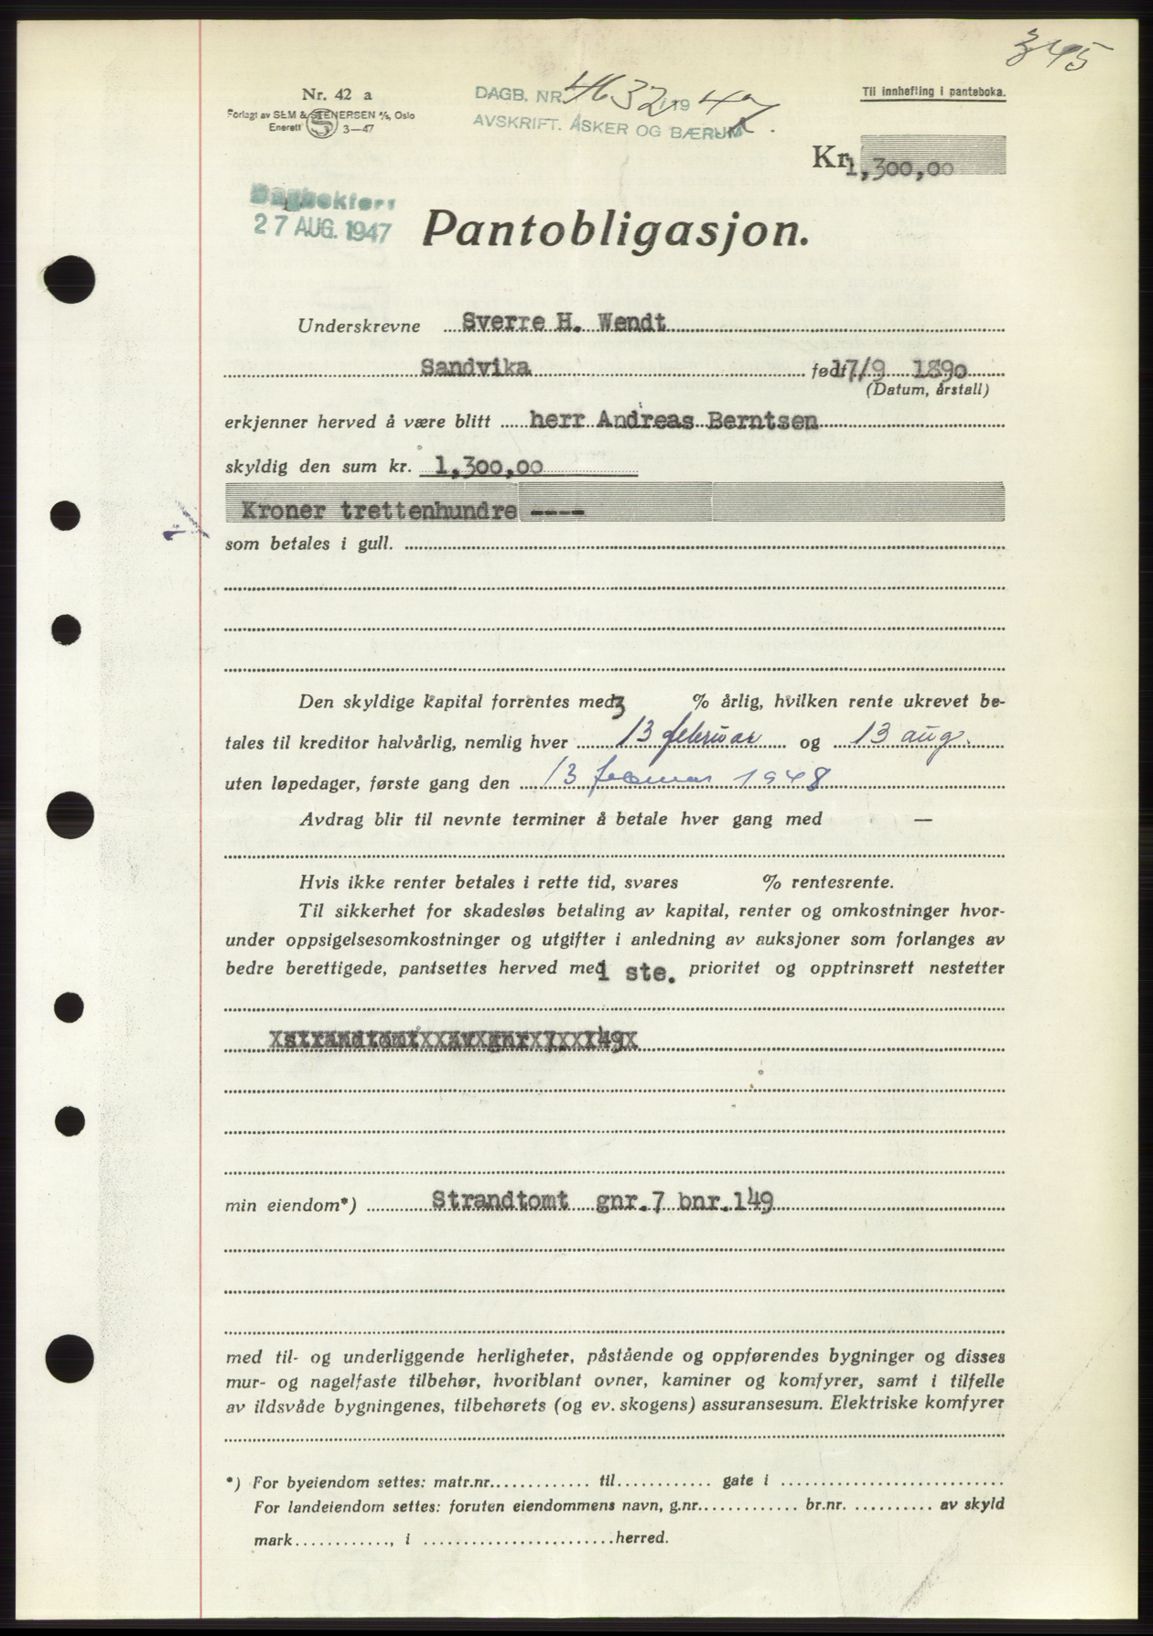 345
Nr. 42 a
Forlagt av SEM & STENERSEN A/S, Oslo
Enerett S 3—47
DAGB. NR. 4632 1947.
AVSKRIFT. ASKER OG BÆRUM
Til innhefting i panteboka.
Kr. 1,300,00
Dagbokført
27 AUG. 1947
Pantobligasjon.
Underskrevne Sverre H. Wendt
Sandvika født 17/9 1890
(Datum, årstall)
erkjenner herved å være blitt herr Andreas Berntsen
skyldig den sum kr. 1,300,00
Kroner trettenhundre ----
som betales i gull.
Den skyldige kapital forrentes med 3 % årlig, hvilken rente ukrevet be-
tales til kreditor halvårlig, nemlig hver 13 februar og 13 aug.
uten løpedager, første gang den 13 februar 1948
Avdrag blir til nevnte terminer å betale hver gang med —
Hvis ikke renter betales i rette tid, svares % rentesrente.
Til sikkerhet for skadesløs betaling av kapital, renter og omkostninger hvor-
under oppsigelsesomkostninger og utgifter i anledning av auksjoner som forlanges av
bedre berettigede, pantsettes herved med 1 ste. prioritet og opptrinsrett nestetter
strandtomt av gnr 7 149
min eiendom*) Strandtomt gnr.7 bnr.149
med til- og underliggende herligheter, påstående og oppførendes bygninger og disses
mur- og nagelfaste tilbehør, hvoriblant ovner, kaminer og komfyrer, samt i tilfelle
av ildsvåde bygningenes, tilbehørets (og ev. skogens) assuransesum. Elektriske komfyrer
*) For byeiendom settes: matr.nr............. til............ gate i ..............................
For landeiendom settes: foruten eiendommens navn, g.nr............. br.nr. .......... av skyld
mark............, i .........................herred.